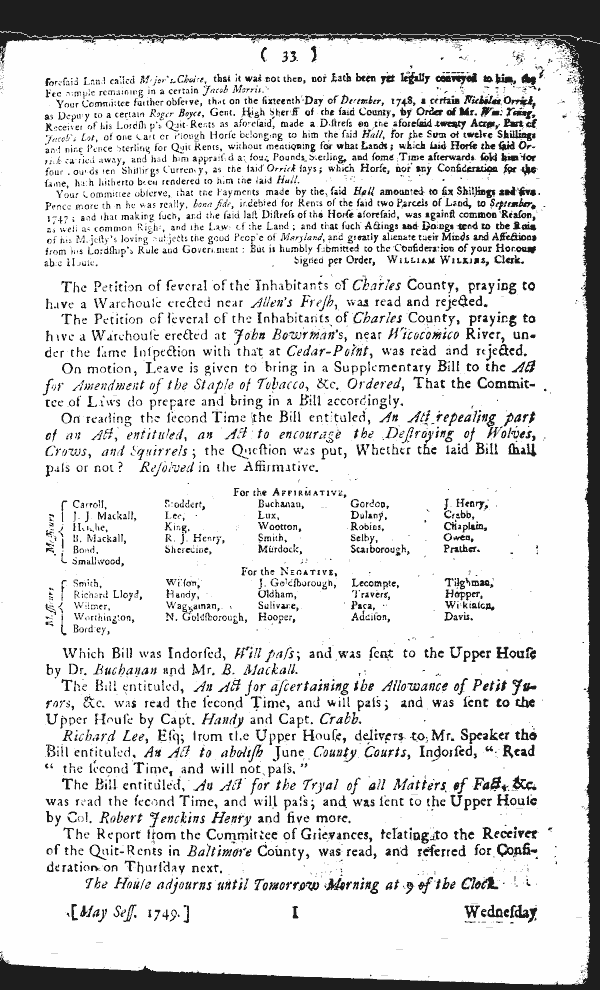 ( 33 )
foresaid Land called Major's-Choice, that it was not then, nor hath been yet legally conveyed to him, the
Fee simple remaining in a certain Jacob Morris.
Your Committee further observe, that on the sixteenth Day of December, 1748, a certain Nicholas Orrick,
as Deputy to a certain Roger Boyce, Gent. High Sheriff of the said County, by Order of Mr. Wm. Young,
Receiver of his Lordship's Quit-Rents as aforesaid, made a Distress on the aforesaid twenty Acres, Part of
Jacob's Lot, of one Cart or Plough Horse belonging to him the said Hall, for the Sum of twelve Shillings
and nine Pence Sterling for Quit Rents, without mentioning for what Lands; which said Horse the said Or-
rick carried away, and had him appraised at four Pounds Sterling, and some Time afterwards sold him for
four Pounds ten Shillings Currency, as the said Orrick says; which Horse, nor any Consideration for the
same, hath hitherto been rendered to him the said Hall.
Your Committee observe, that the Payments made by the said Hall amounted to six Shillings and five
Pence more than he was really, bona fide, indebted for Rents of the said two Parcels of Land, to September,
1747; and that making such, and the said last Distress of the Horse aforesaid, was against common Reason,
as well as common Right, and the Law of the Land; and that such Actings and Doings tend to the Ruin
of his Majesty's loving Subjects the good People of Maryland, and greatly alienate their Minds and Affections
from his Lordship's Rule and Government: But is humbly submitted to the Consideration of your Honour-
able House. Signed per Order, WILLIAM WILKINS, Clerk.
The Petition of several of the Inhabitants of Charles County, praying to
have a Warehouse erected near Allen's Fresh, was read and rejected.
The Petition of several of the Inhabitants of Charles County, praying to
have a Warehouse erected at John Bowrman's, near Wicocomico River, un-
der the same Inspection with that at Cedar-Point, was read and rejected.
On motion, Leave is given to bring in a Supplementary Bill to the Act
for Amendment of the Staple of Tobacco, &c. Ordered, That the Commit-
tee of Laws do prepare and bring in a Bill accordingly.
On reading the second Time the Bill entituled, An Act repealing part
of an Act, entituled, an Act to encourage the Destroying of Wolves,
Crows, and Squirrels; the Question was put, Whether the said Bill shall
pass or not? Resolved in the Affirmative.
For the AFFIRMATIVE,
Messieurs
Carroll, Stoddert, Buchanan, Gordon, J. Henry,
J. J. Mackall, Lee, Lux, Dulany, Crabb,
King, Wootton, Robins, Chaplain,
B. Mackall, R. J. Henry, Smith, Selby, Owen,
Bond, Sheredine, Murdock, Scarborough, Prather.
Smallwood,
For the NEGATIVE,
Messieurs
Smith, Wilson, J. Goldsborough, Lecompte, Tilghman,
Richard Lloyd, Handy, Oldham, Travers, Hopper,
Wilmer, Waggaman, Sulivane, Paca, Wilkinson,
Worthington, N. Goldsborough, Hooper, Addison, Davis.
Bordley,
Which Bill was Indorsed, Will pass; and was sent to the Upper House
by Dr. Buchanan and Mr. B. Mackall.
The Bill entituled, An Act for ascertaining the Allowance of Petit Ju-
rors, &c. was read the second Time, and will pass; and was sent to the
Upper House by Capt. Handy and Capt. Crabb.
Richard Lee, Esq; from the Upper House, delivers to Mr. Speaker the
Bill entituled, An Act to abolish June County Courts, Indorsed, “ Read
“ the second Time, and will not pass.”
The Bill entituled, An Act for the Tryal of all Matters of Fact, &c.
was read the second Time, and will pass; and was sent to the Upper House
by Col. Robert Jenckins Henry and five more.
The Report from the Committee of Grievances, relating to the Receiver
of the Quit-Rents in Baltimore County, was read, and referred for Consi-
deration on Thursday next.
The House adjourns until Tomorrow Morning at 9 of the Clock.
[May Sess. 1749.] I Wednesday